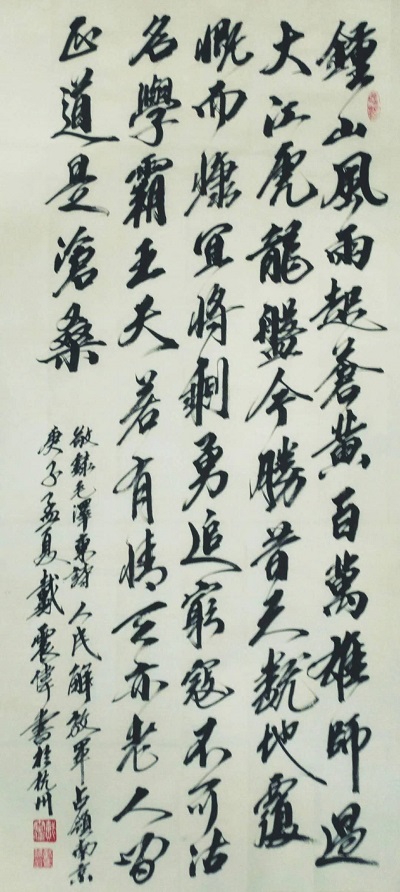 鍾山風雨起蒼黃百萬雄師過
大江虎龍盤今勝昔天翻地覆
慨而慷宜將剩勇追窮寇不可沽
名學霸王天若有情天亦老人間
正道是滄桑
敬錄毛澤東詩人民解放軍占領南京
庚子孟夏戴震偉書於杭州